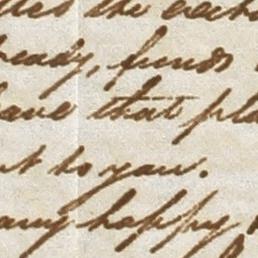 the
ready, funds
have that pla
t to you.
any happy